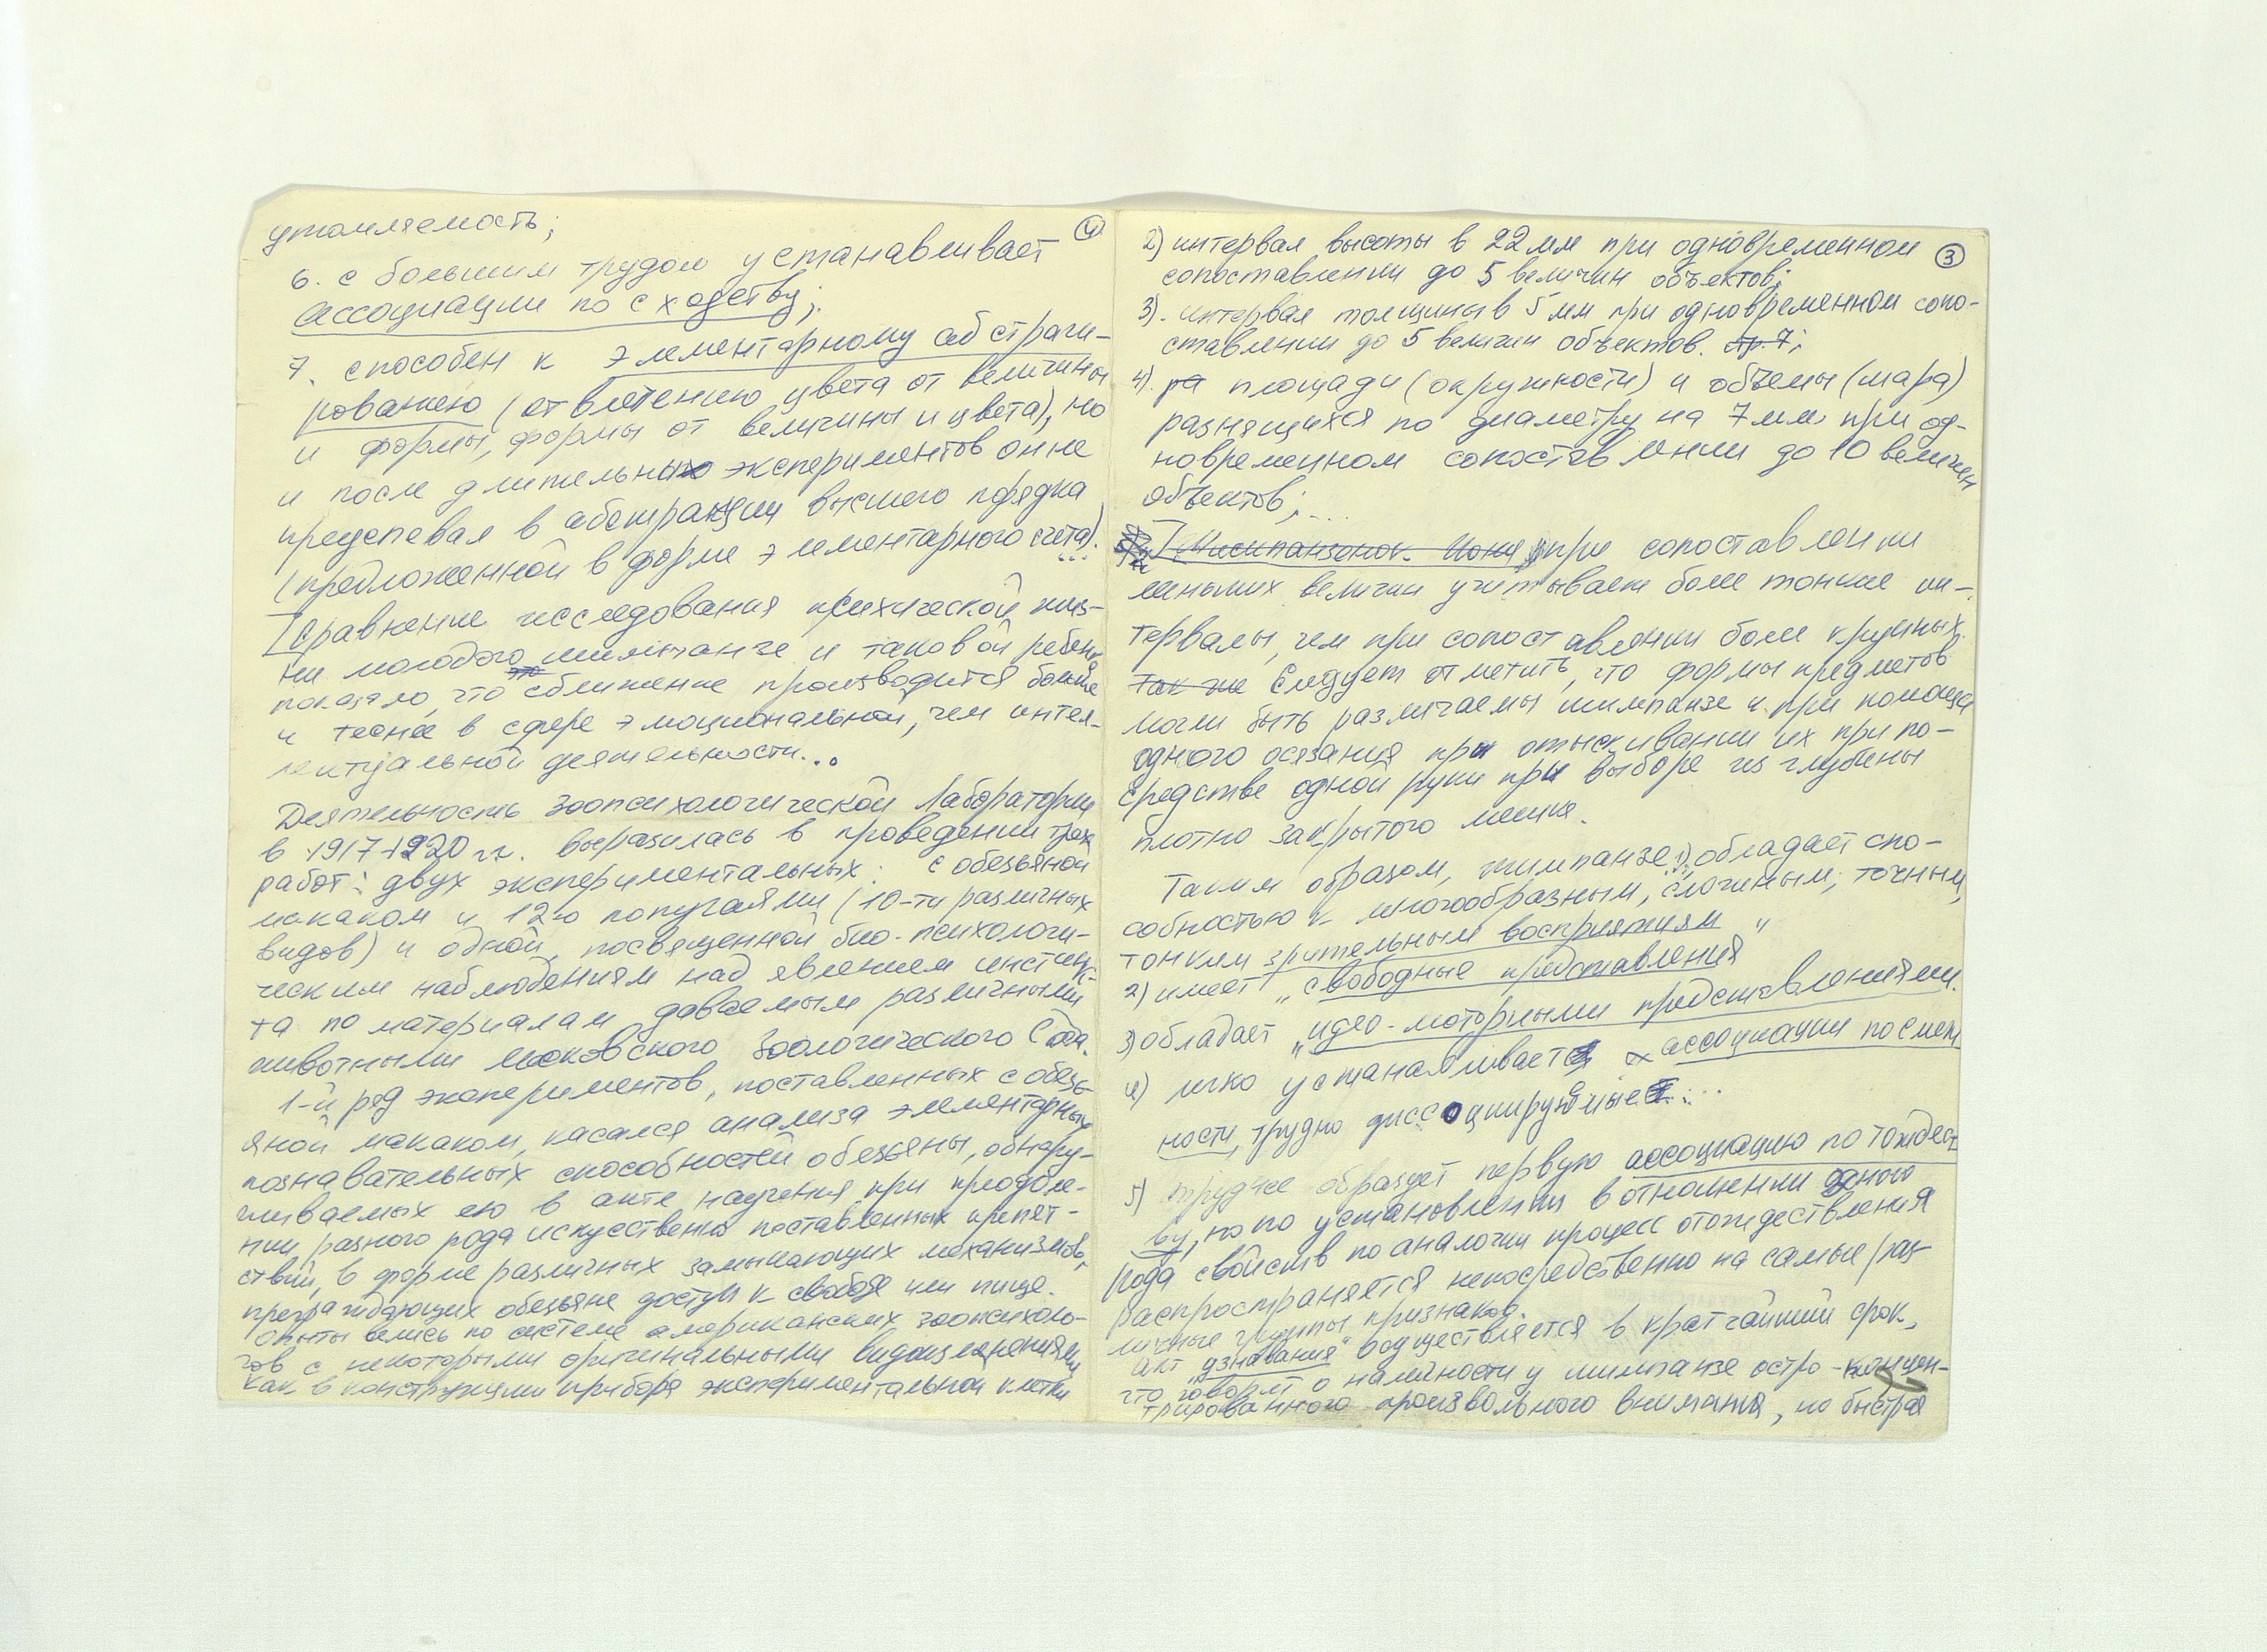 утомляемость;
④
6. с большим трудом устанавливает
ассоциации по сходству;
7. способен к элементарному абстраги-
рованию (отвлечению цвета от величины
и формы, формы от величины и цвета), но
и после длительных экспериментов он не
преуспевал в абстракции высшего порядка
(предложенной в форме элементарного счета).
...
[Сравнение исследования психической жиз-
ни молодого шимпанзе и таковой ребенка
показало, что сближение производится больше
и теснее в сфере эмоциональной, чем интел-
лектуальной деятельности...
Деятельность Зоопсихологической Лаборатории
в 1917-1920 гг. выразилась в проведении трех
работ: двух экспериментальных: с обезьяной
макаком и 12-ю попугаями (10-ти различных
видов) и одной, посвященной био-психологи-
ческим наблюдениям над явлением инстинк-
та по материалам даваемым различными
животными Московского Зоологического Сада.
1-й ряд экспериментов, поставленных с обезь-
яной макаком, касался анализа элементарных
познавательных способностей обезьяны, обнару-
живаемых ею в акте научения при преодоле-
нии разного рода искусственно поставленных препят-
ствий, в форме различных замыкающих механизмов,
преграждающих обезьяне доступ к свободе или пище.
Опыты велись по системе американских зоопсихоло-
гов с некоторыми оригинальными видоизменениями
как в конструкции прибора экспериментальной клетки
2) интервал высоты в 22 мм при одновременном
③
сопоставлении до 5 величин объектов;
3). интервал толщины в 5 мм при одновременном сопо-
ставлении до 5 величин объектов. стр. 7;
4). ра площади (окружности) и объемы (шара)
разнящихся по диаметру на 7 мм при од-
новременном сопоставлении до 10 величин
объектов; ...
[Шимпанзенок Иони при сопоставлении
меньших величин учитывает более тонкие ин-
тервалы, чем при сопоставлении более крупных.
Так же Следует отметить, что формы предметов
могли быть различаемы шимпанзе и при помощи
одного осязания при отыскивании их при по-
средстве одной руки при выборе из глубины
плотно закрытого мешка.
Таким образом, шимпанзе: 1) обладает спо-
собностью к многообразным, сложным, точным,
тонким зрительным восприятиям
2) имеет „свободные представления"
3) обладает „идео-моторными представлениями.
4) легко устанавливает ассоциации по смеж
ности, трудно диссоциируемые...
5) труднее образует первую ассоциацию по тождест
ву, но по установлении в отношении одного
рода свойств по аналогии процесс отождествления
распространяется непосредственно на самые раз-
личные группы признаков.
акт „узнавания" осуществляется в кратчайший срок,
что говорит о наличности у шимпанзе остро-концен-
трированного произвольного внимания, но быстрая